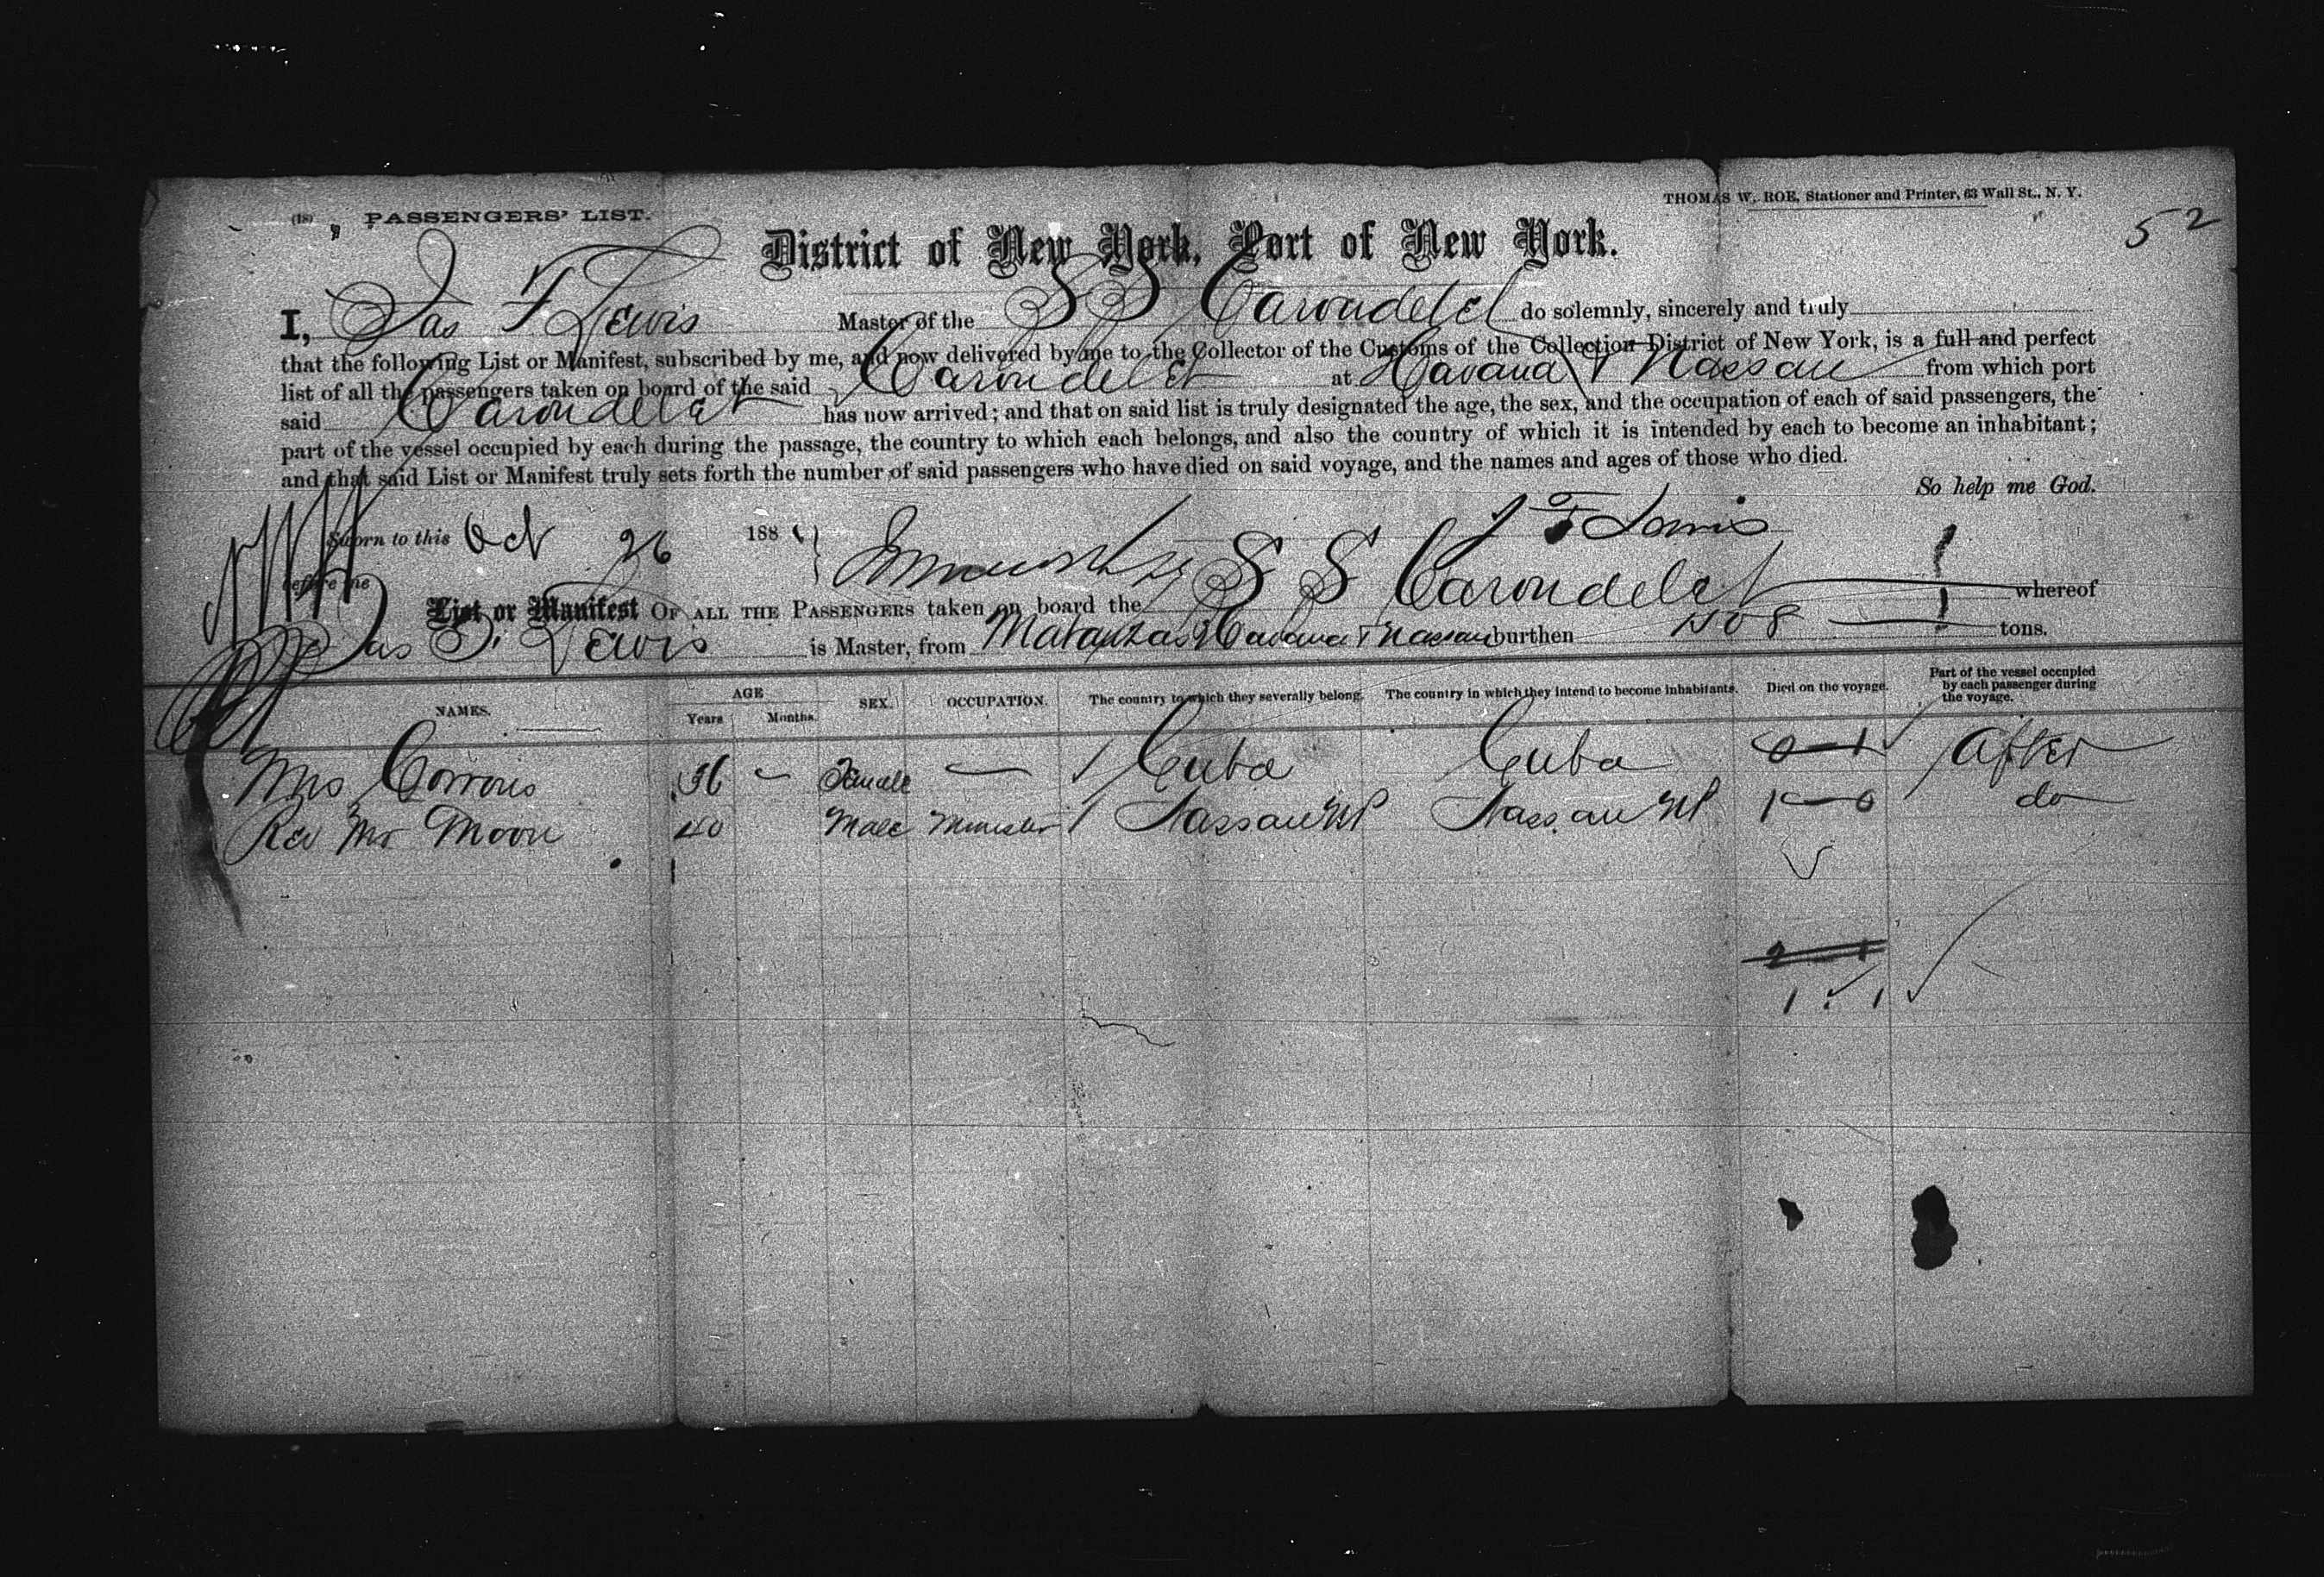 (18) PASSENGERS' LIST.
THOMAS W. ROE, Stationer and Printer, 63 Wall St., N. Y.
52
District of New York, Port of New York.
I, Jas F Lewis Master of the SS Carondelet do solemnly, sincerely and truly
that the following List or Manifest, subscribed by me, and now delivered by me to the Collector of the Customs of the Collection District of New York, is a full and perfect
list of all the passengers taken on board of the said Carondelet at Havana & Nassau from which port
said Carondelet has now arrived; and that on said list is truly designated the age, the sex, and the occupation of each of said passengers, the
part of the vessel occupied by each during the passage, the country to which each belongs, and also the country of which it is intended by each to become an inhabitant;
and that said List or Manifest truly sets forth the number of said passengers who have died on said voyage, and the names and ages of those who died.
So help me God.
Sworn to this Oct 26 188
J F Lewis
before me
List or Manifest OF ALL THE PASSENGERS taken on board the S S Carondelet whereof
Jas F. Lewis is Master, from Matanzas Havana & Nassau burthen 1508 tons.
NAMES. AGE Years Months. SEX. OCCUPATION. The country to which they severally belong. The country in which they intend to become inhabitants. Died on the voyage. Part of the vessel occupied by each passenger during the voyage.
Mrs 36 Female — Cuba Cuba 0-1 After
Rev Mr Moon 40 Male Minister Nassau NP Nassau NP 1-0 do
2 1
1 1